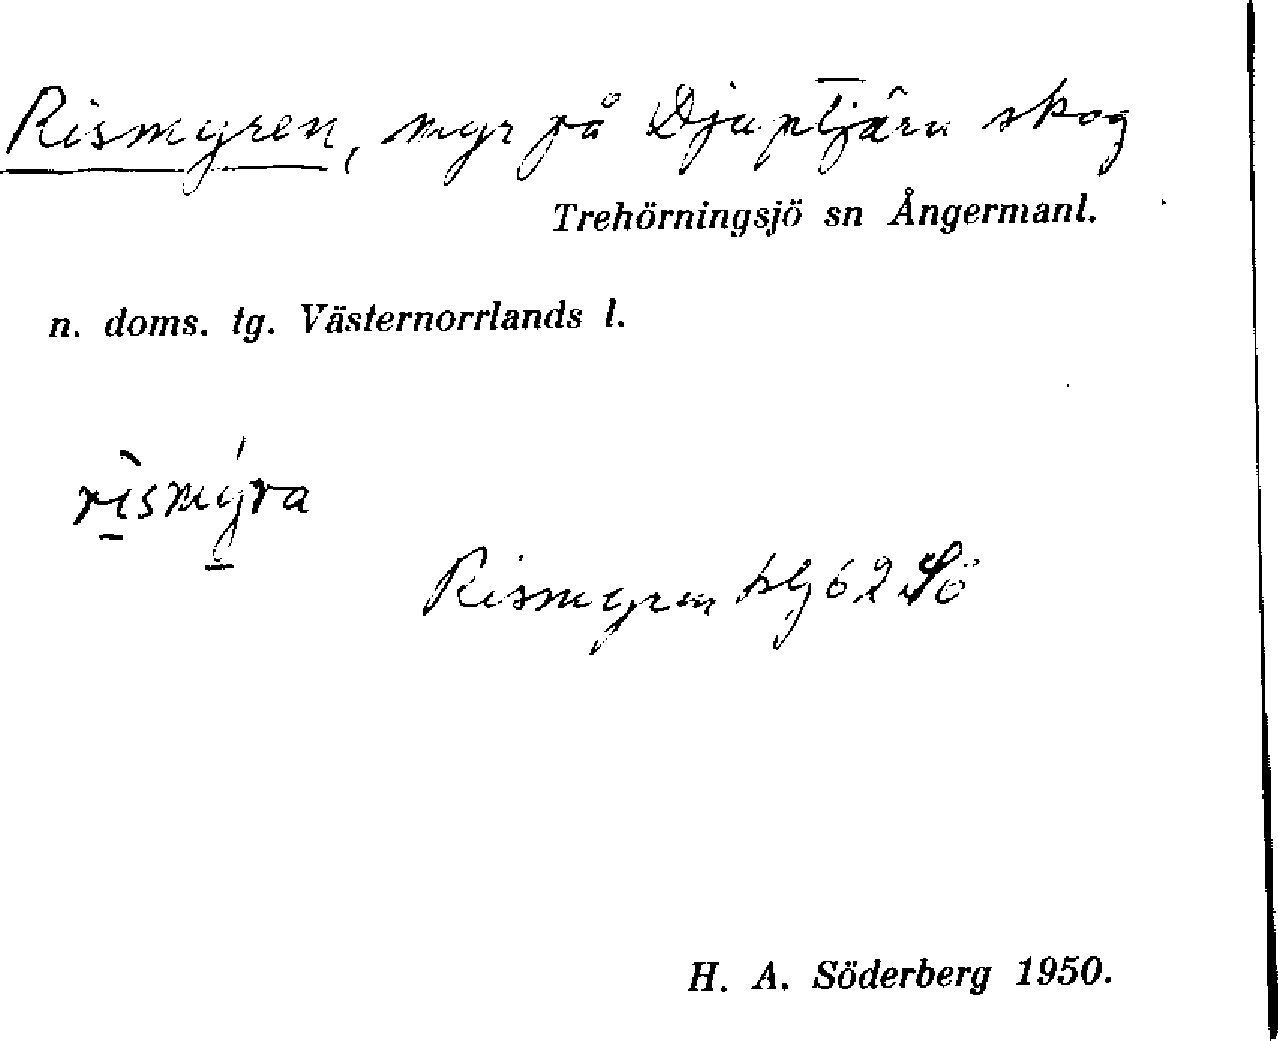 Rismyren, myr på Djuptjärn skog
Trehörningsjö sn Ångermanl.
n. doms. tg. Västernorrlands l.
rìsmýra
Rismyren blj 62 Sö
H. A. Söderberg 1950.